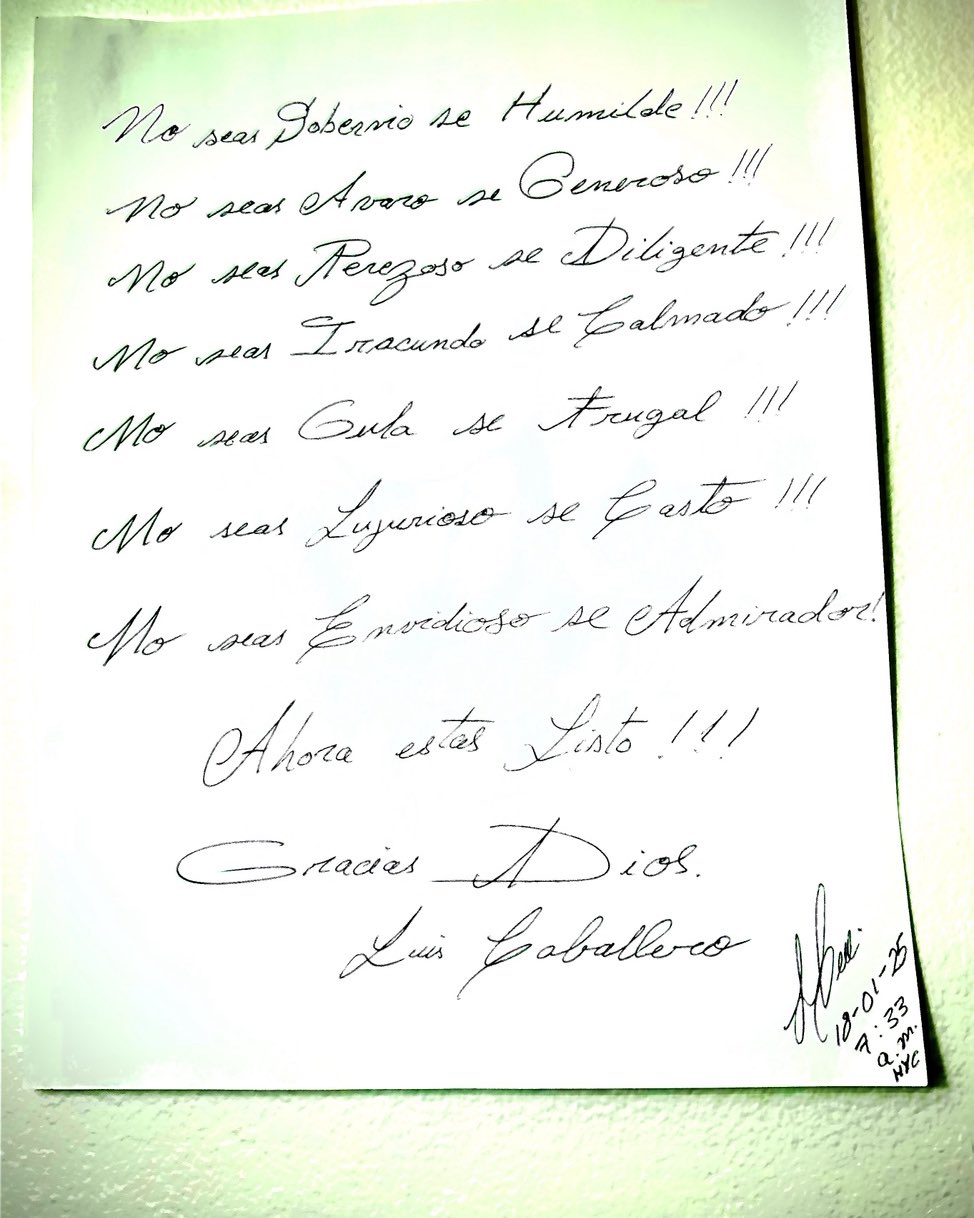 No seas Sobervio se Humilde!!!
No seas Avaro se Generoso!!!
No seas Perezoso se Diligente!!!
No seas Iracundo se Calmado!!!
No seas Gula se Frugal !!!
No seas Lujurioso se Casto !!!
No seas Envidioso se Admirador!
Ahora estas Listo!!!
Gracias Dios.
Luis Caballero
18-01-25
7:33
a.m.
NYC